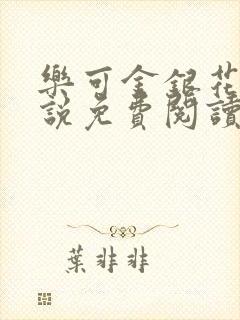 樂可金銀花
說免費閱讀
葉非非